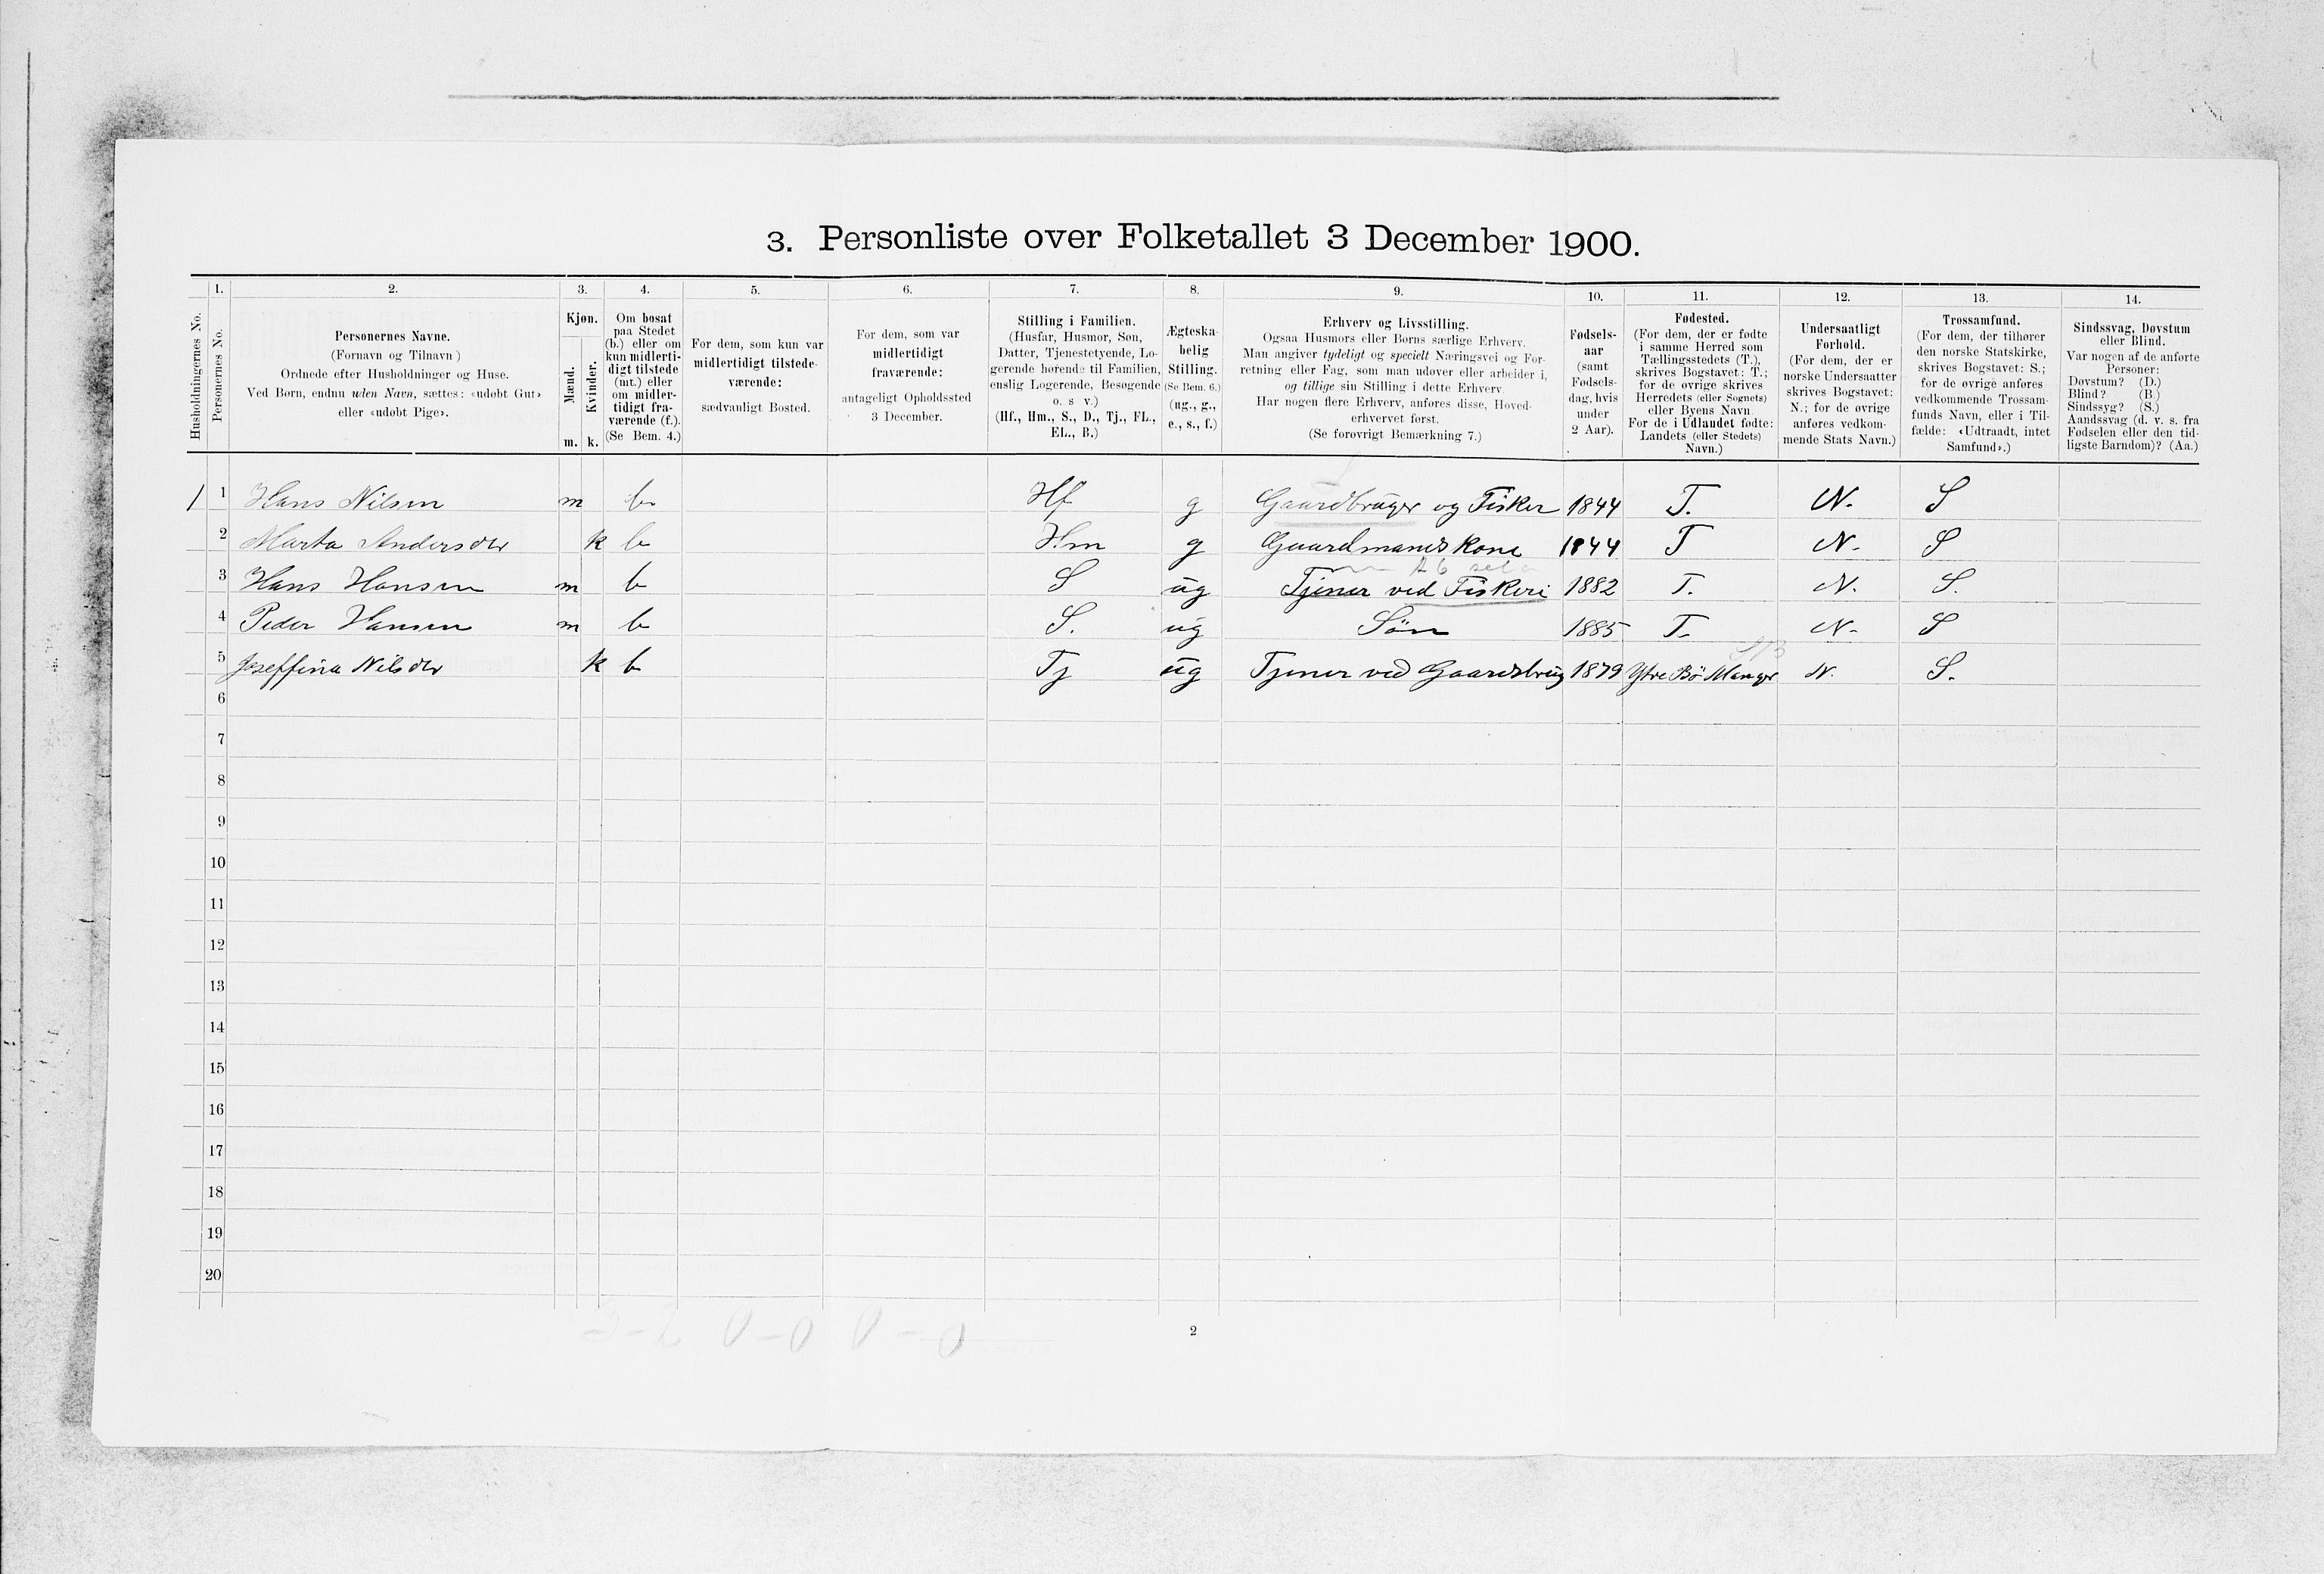 3. Personliste over Folketallet 3 December 1900.
1. 2. 3. 4. 5. 6. 7. 8. 9. 10. 11. 12. 13. 14.
Husholdningernes No.
Personernes No.
Personernes Navne.
(Fornavn og Tilnavn)
Ordnede efter Husholdninger og Huse.
Ved Børn, endnu uden Navn, sættes: «udøbt Gut»
eller «udøbt Pige».
Kjøn.
Mænd.
Kvinder.
m. k.
Om bosat
paa Stedet
(b.) eller om
kun midlerti-
digt tilstede
(mt.) eller
om midler-
tidigt fra-
værende (f.).
(Se Bem. 4.)
For dem, som kun var
midlertidigt tilstede-
værende:
sædvanligt Bosted.
For dem, som var
midlertidigt
fraværende:
antageligt Opholdssted
3 December.
Stilling i Familien.
(Husfar, Husmor, Søn,
Datter, Tjenestetyende, Lo-
gerende hørende til Familien,
enslig Logerende, Besøgende
o. s v.)
(Hf., Hm., S., D., Tj., FL.,
EL., B.)
Ægteska-
belig
Stilling.
(Se Bem. 6.)
(ug., g.,
e., s., f.)
Erhverv og Livsstilling.
Ogsaa Husmors eller Børns særlige Erhverv.
Man angiver tydeligt og specielt Næringsvei og For-
retning eller Fag, som man udøver eller arbeider i,
og tillige sin Stilling i dette Erhverv.
Har nogen flere Erhverv, anføres disse, Hoved-
erhvervet først.
(Se forøvrigt Bemærkning 7.)
Fødsels-
aar
(samt
Fødsels-
dag, hvis
under
2 Aar).
Fødested.
(For dem, der er fødte
i samme Herred som
Tællingsstedets (T.),
skrives Bogstavet: T.;
for de øvrige skrives
Herredets (eller Sognets)
eller Byens Navn
For de i Udlandet fødte:
Landets (eller Stedets)
Navn.)
Undersaatligt
Forhold.
(For dem, der er
norske Undersaatter
skrives Bogstavet:
N.; for de øvrige
anføres vedkom-
mende Stats Navn.)
Trossamfund.
(For dem, der tilhører
den norske Statskirke,
skrives Bogstavet: S.;
for de øvrige anføres
vedkommende Trossam-
funds Navn, eller i Til-
fælde: «Udtraadt, intet
Samfund».)
Sindssvag, Døvstum
eller Blind.
Var nogen af de anførte
Personer:
Døvstum? (D.)
Blind? (B)
Sindssyg? (S.)
Aandssvag (d. v. s. fra
Fødselen eller den tid-
ligste Barndom)? (Aa.)
1 1 Hans Nilsen m b Hf g Gaardbruger og Fisker 1844 T. N. S
2 Marta Andersdtr k b Hm g Gaardmands Kone 1844 T N. S
3 Hans Hansen m b S ug Tjener ved Fiskeri 1882 T. N. S.
4 Peder Hansen m b S. ug Søn 1885 T. N. S
5 Joseffina Nilsdtr k b Tj ug Tjener ved Gaardsbrug 1879 Ytre Bö Manger N. S.
6
7
8
9
10
11
12
13
14
15
16
17
18
19
20
2